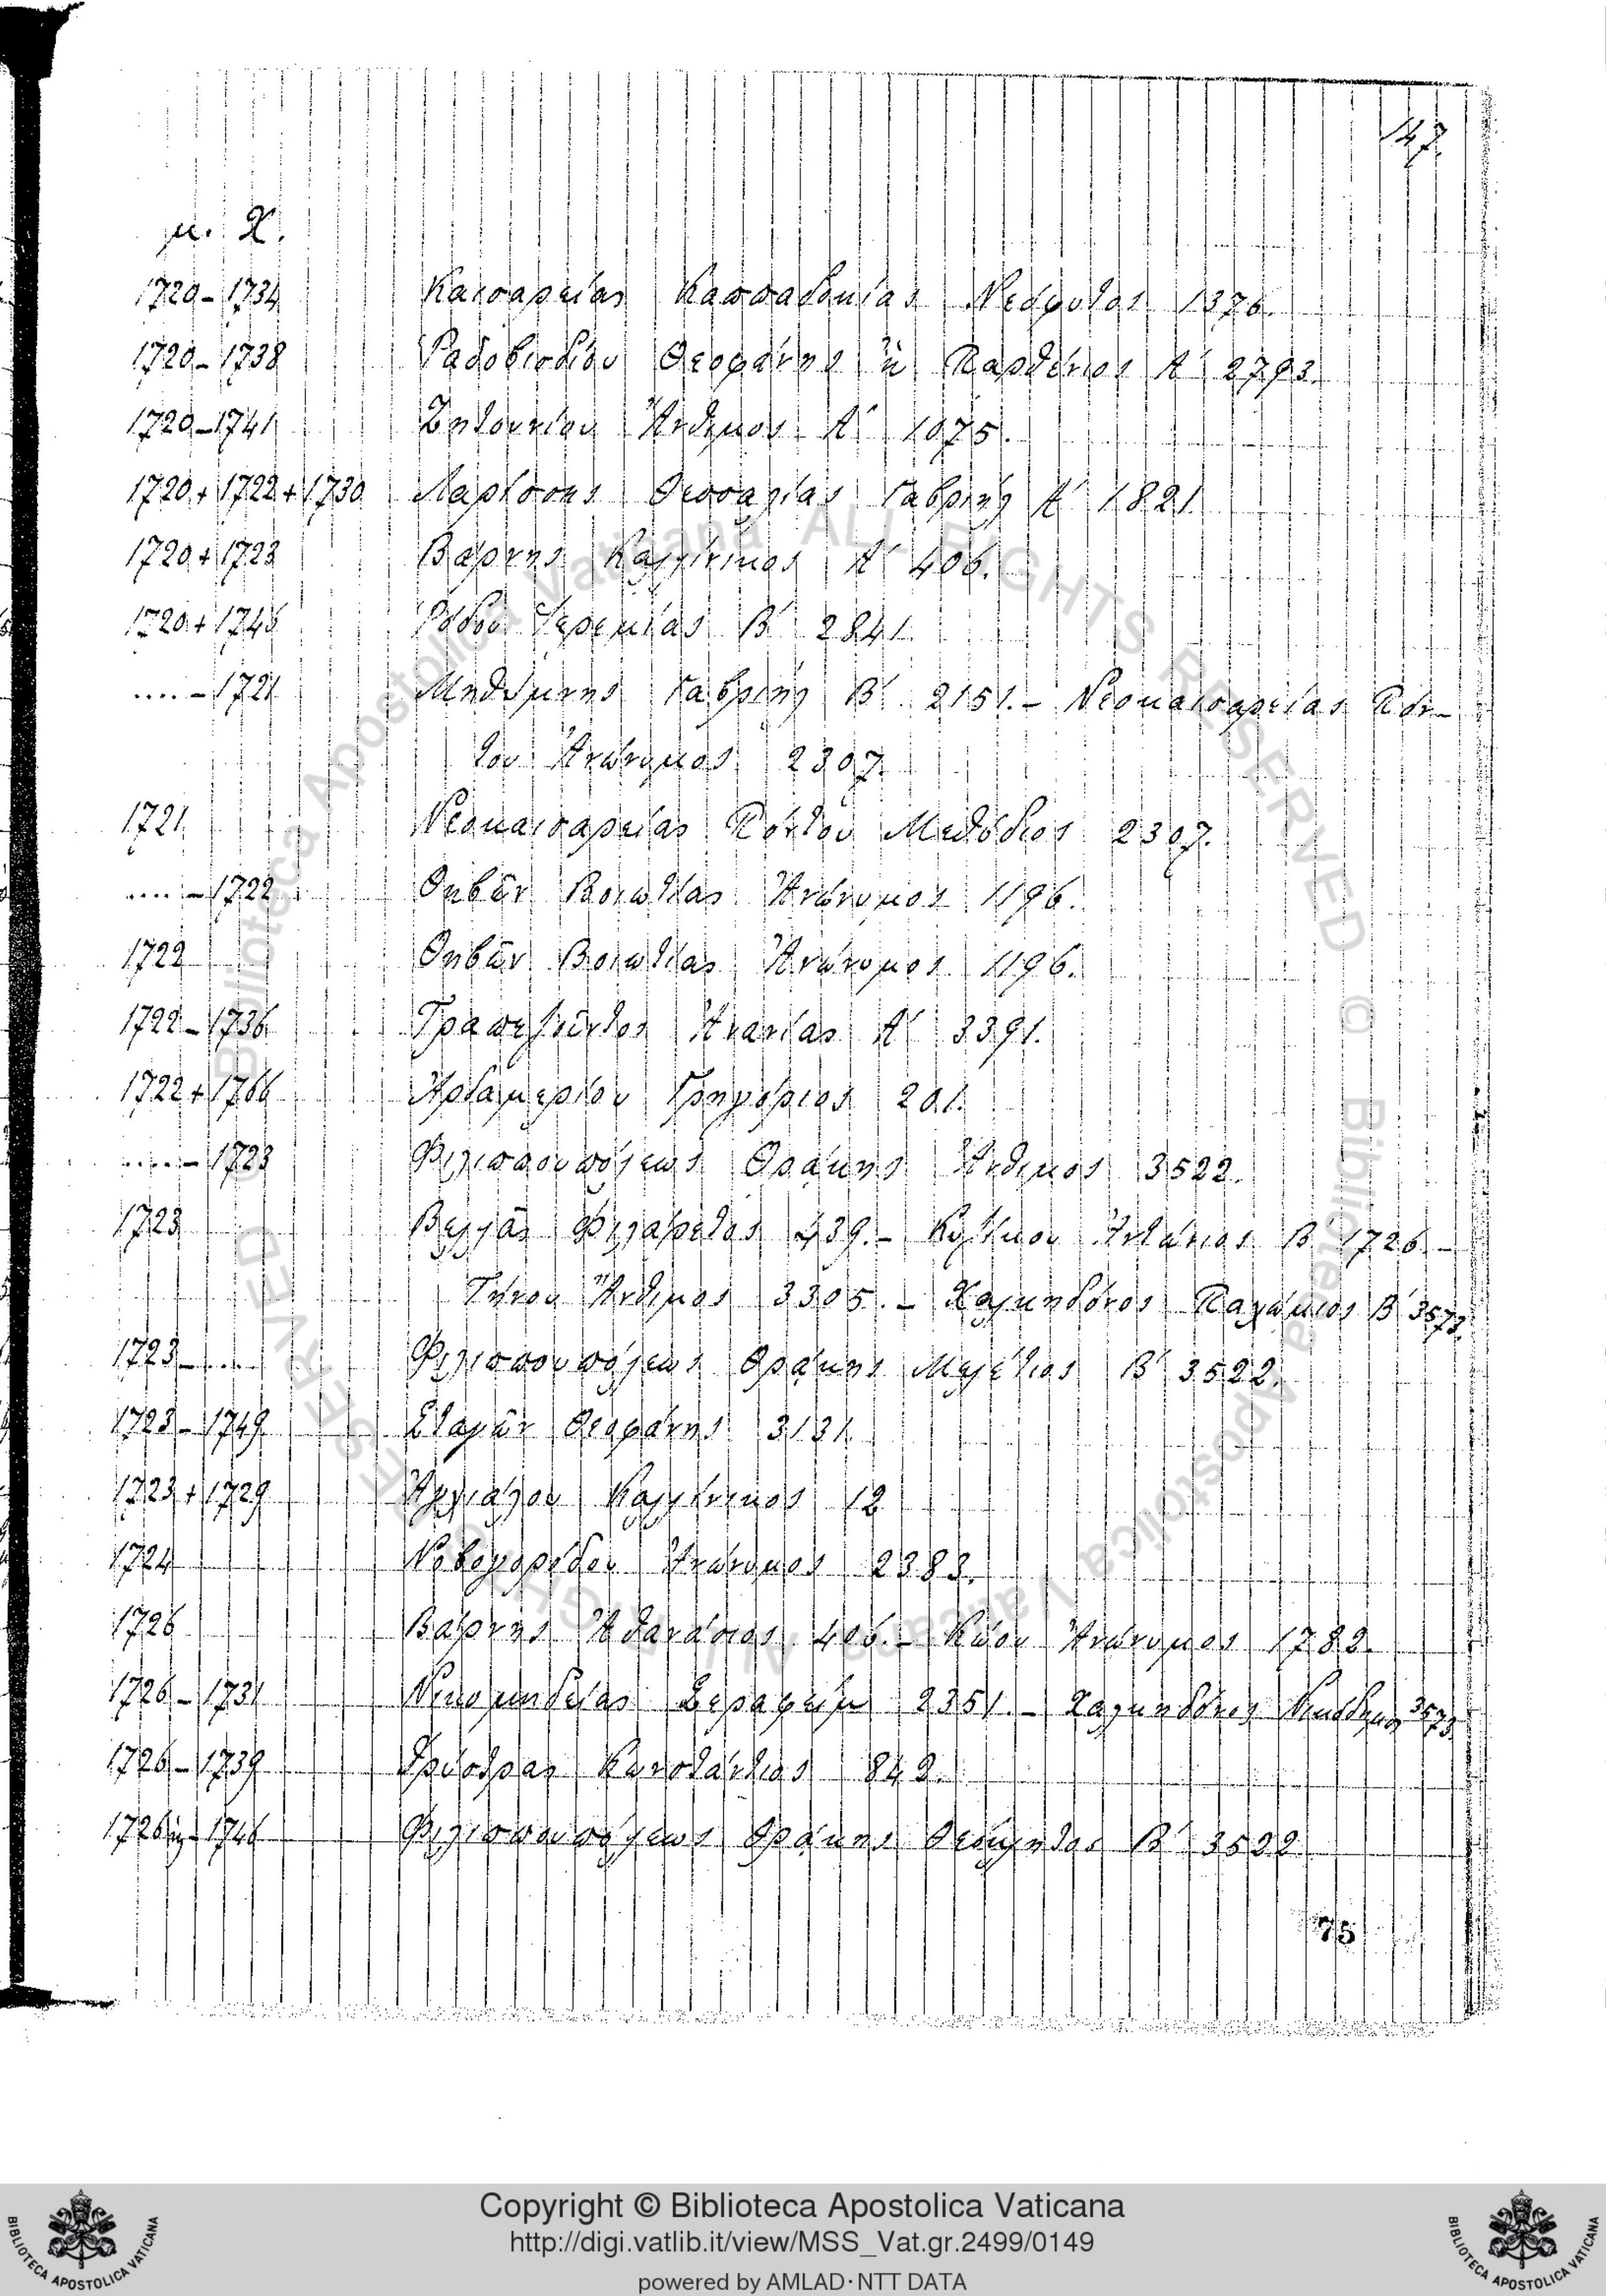 147.
μ. Χ.
1720 - 1734 Καισαρείας Καππαδοκίας Νεόφυτος 1376.
1720 - 1738 Ῥαδοβισδίου Θεοφάνης ἢ Παρθένιος Α΄ 2793.
1720 - 1741 Ζητουνίου Ἄνθιμος Α΄ 1075.
1720 + 1722 + 1730 Λαρίσσης Θεσσαλίας Γαβριὴλ Α΄ 1821.
1720 + 1723 Βάρνης Καλλίνικος Α΄ 406.
1720 + 1745 Ῥόδου Ἱερεμίας Β΄ 2841.
.... - 1721 Μηθύμνης Γαβριὴλ Β΄ 2151. - Νεοκαισαρείας Πόν-
του Ἀνώνυμος 2307.
1721 Νεοκαισαρείας Πόντου Μεθόδιος 2307.
.... - 1722 Θηβῶν Βοιωτίας Ἀνώνυμος 1196.
1722 Θηβῶν Βοιωτίας Ἀνώνυμος 1196.
1722 - 1736 Τραπεζοῦντος Ἀνανίας Α΄ 3391.
1722 + 1766 Ἀρδαμερίου Γρηγόριος 201.
.... - 1723 Φιλιππουπόλεως Θρᾴκης Ἄνθιμος 3522.
1723 Βελλᾶς Φιλάρετος 439. - Κυζίκου Β΄ 1726. -
Τήνου Ἄνθιμος 3305. - Χαλκηδόνος Παχώμιος Β΄ 3573.
1723 - .... Φιλιππουπόλεως Θρᾴκης Μελέτιος Β΄ 3522.
1723 - 1749 Σταγῶν Θεοφάνης 3131.
1723 + 1729 Ἀγχιάλου Καλλίνικος 12
1724 Νοβογορόδου Ἀνώνυμος 2383.
1726 Βάρνης Ἀθανάσιος 406. - Κώου Ἀνώνυμος 1782.
1726 - 1731 Νικομηδείας Σεραφείμ 2351. - Χαλκηδόνος Νικόδημος 3573
1726 - 1739 Δρύστρας Κωνστάντιος 842.
1726 ἢ - 1746 Φιλιππουπόλεως Θρᾴκης Θεόκλητος Β΄ 3522
75
Copyright © Biblioteca Apostolica Vaticana
http://digi.vatlib.it/view/MSS_Vat.gr.2499/0149
powered by AMLAD·NTT DATA
BIBLIOTECA APOSTOLICA VATICANA
BIBLIOTECA APOSTOLICA VATICANA